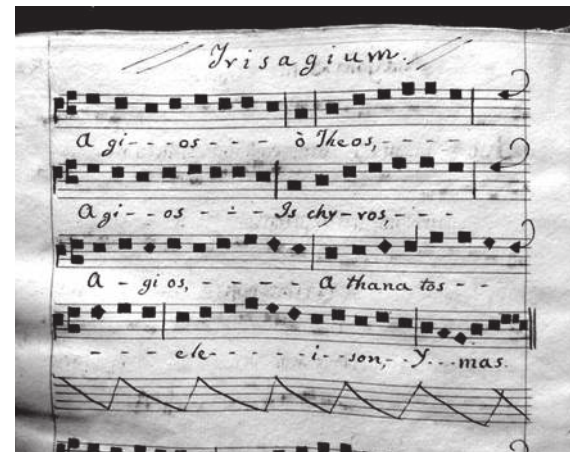 Trisagium.
A gi - - - os - - - - ò Theos, - - - -
A gi - - os - - - Is chy - ros, - - -
A - gi os, - - - - - A thana tos - -
- - - - ele - - - - - i - - son, - Y - - - mas.